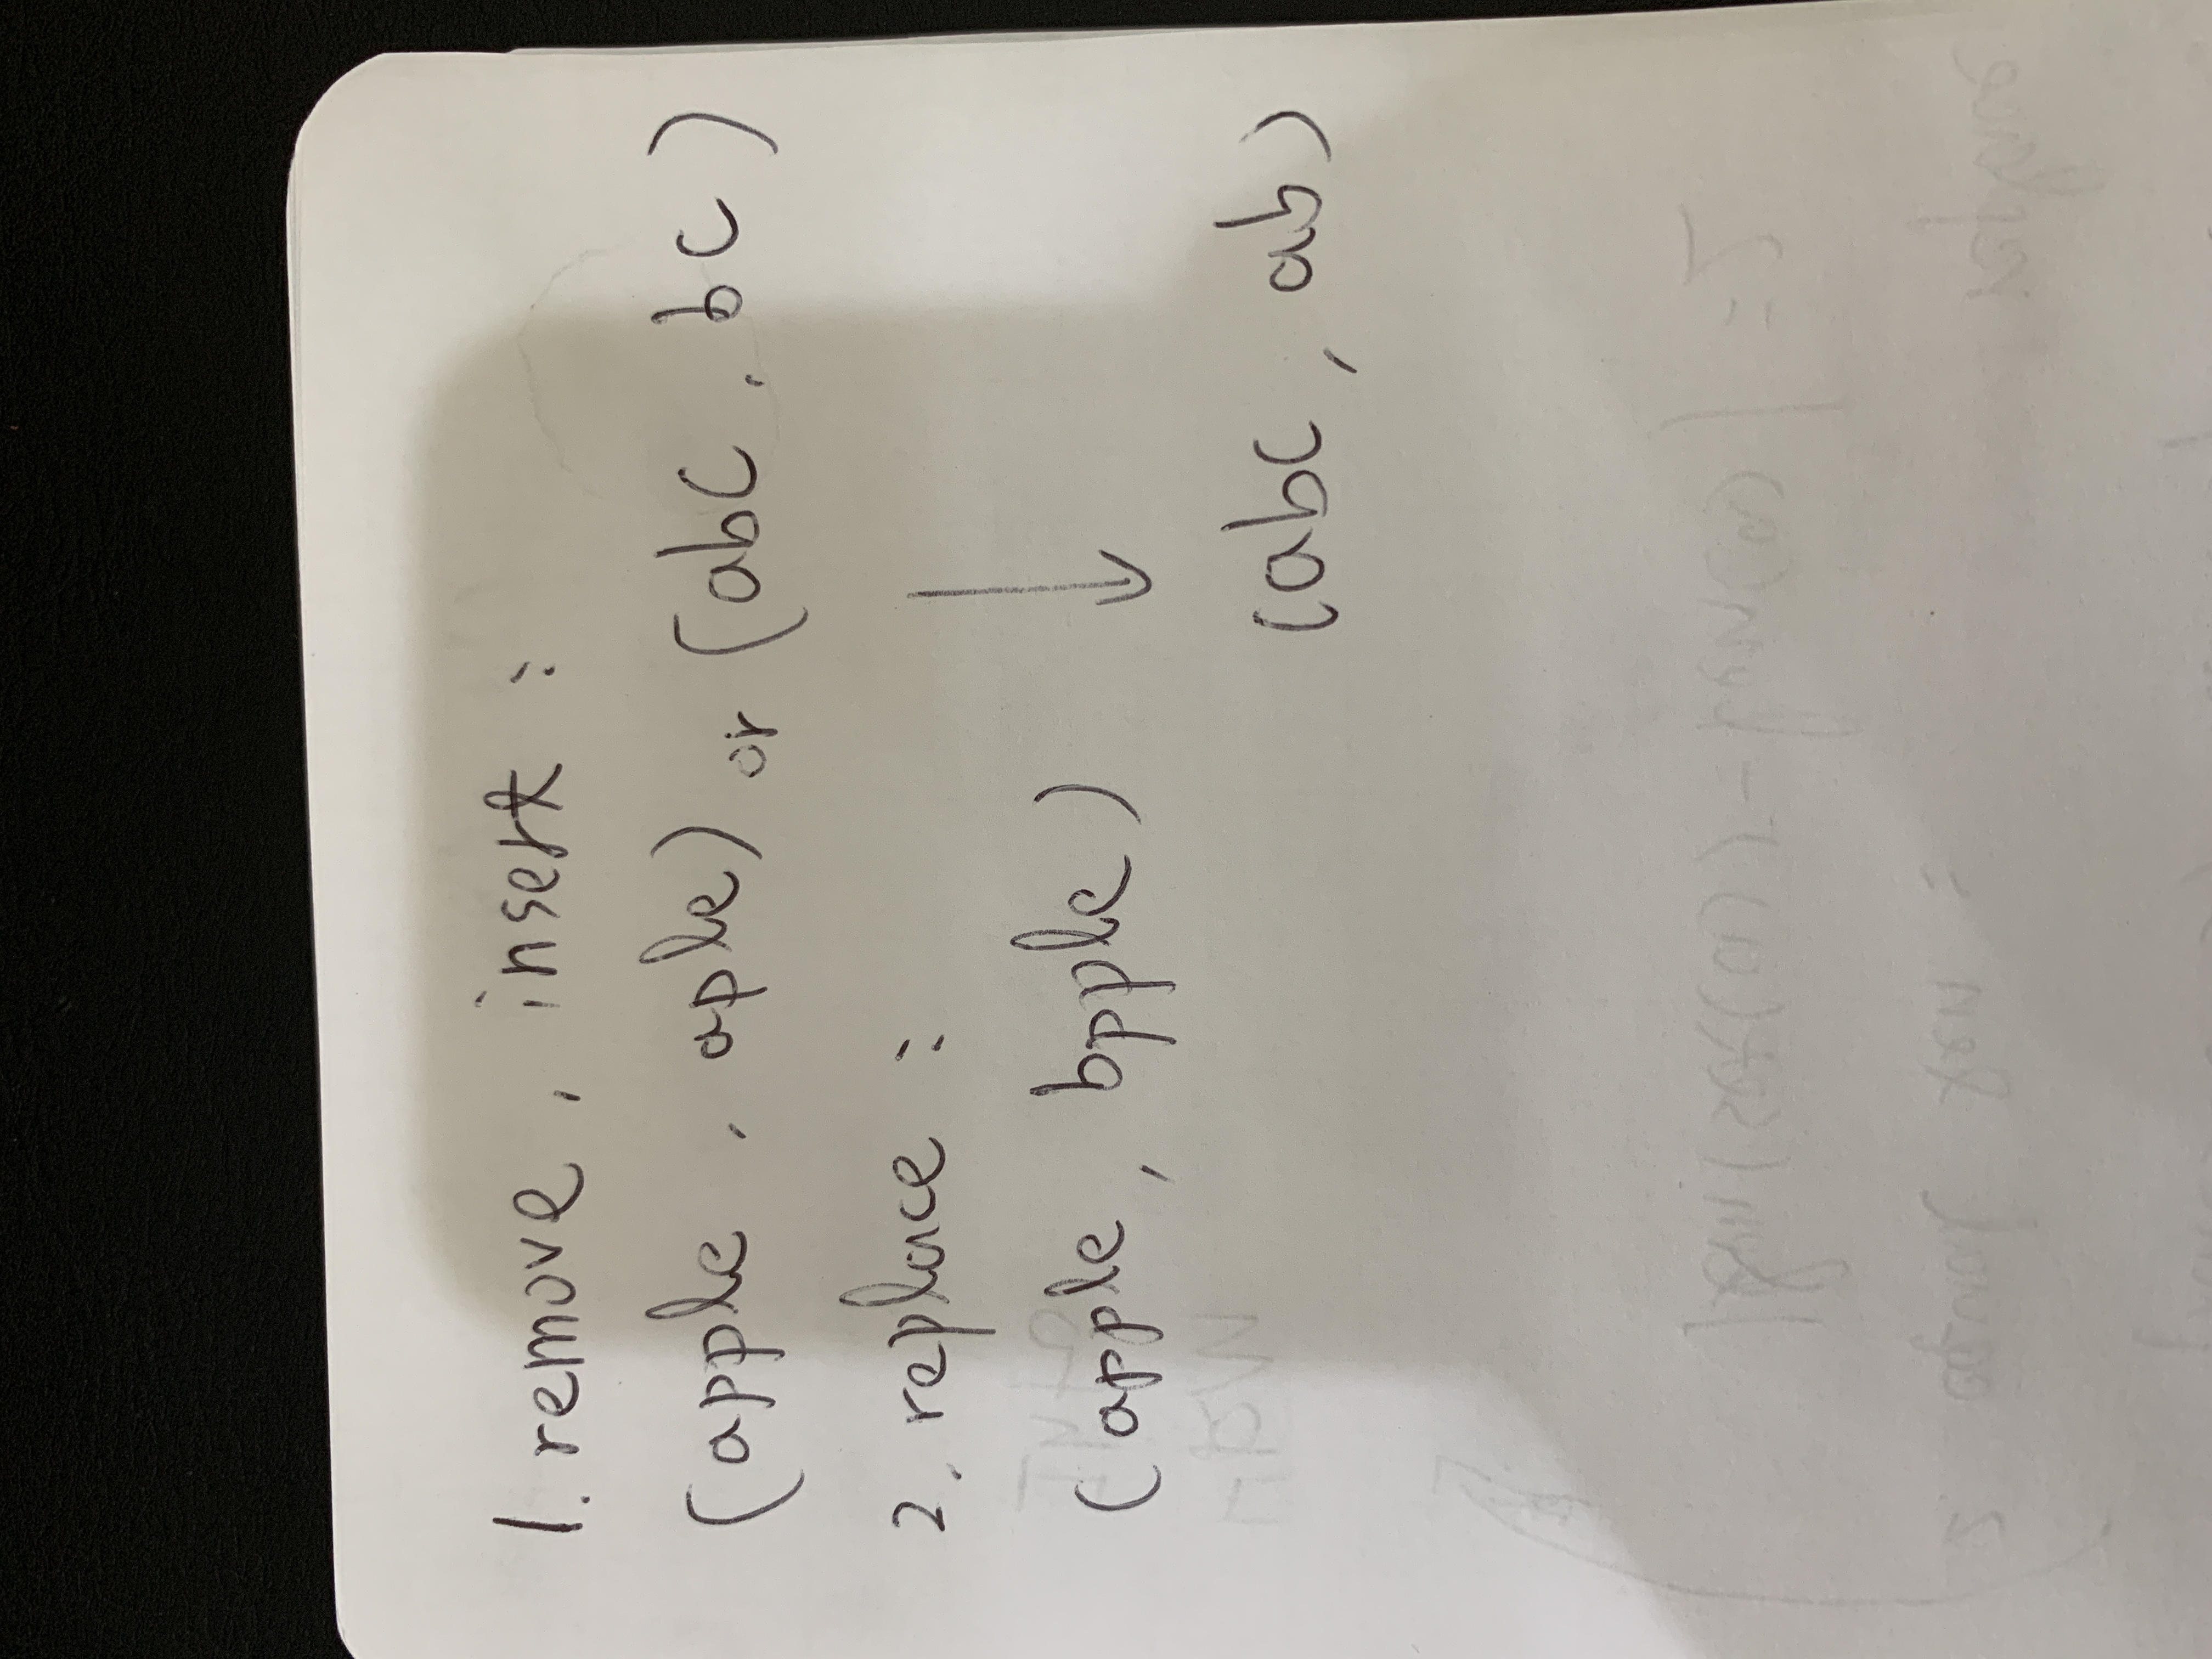 1. remove, insert :
(apple, aple) or (abc, bc)
2. replace :
(apple, bpple)
(abc, ab)